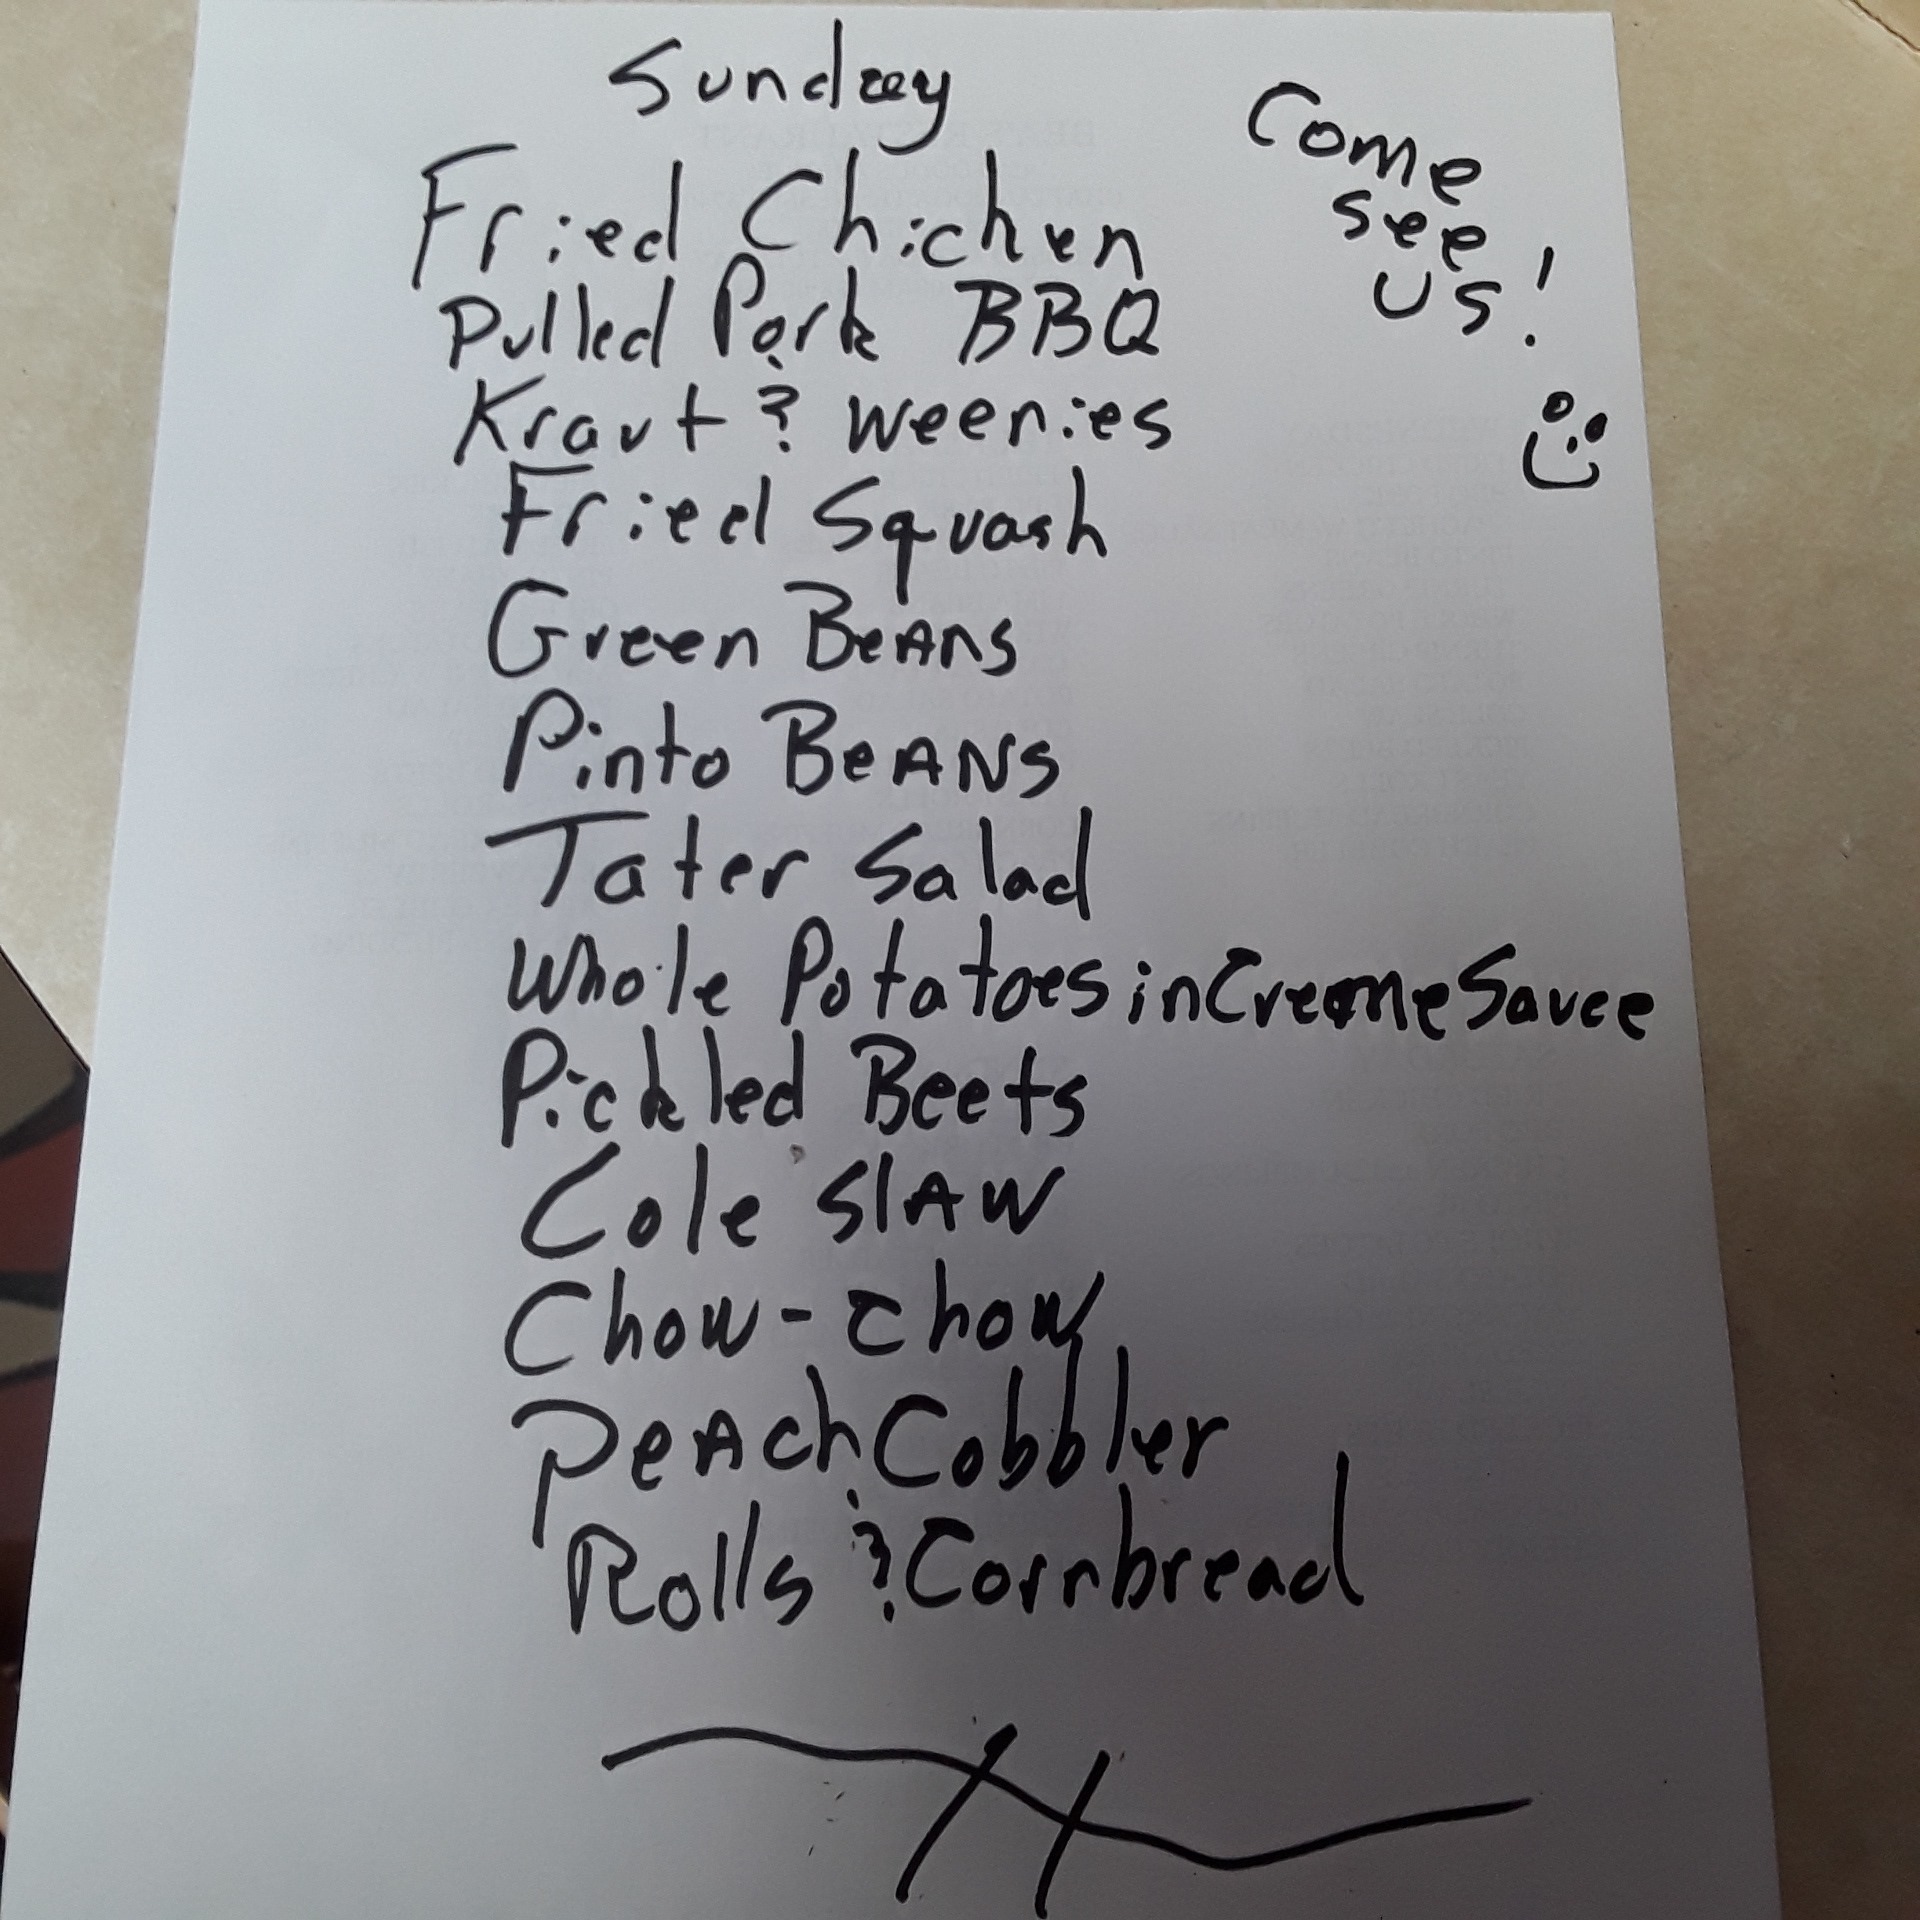 Sunday
Fried Chicken
Pulled Pork BBQ
Kraut & weenies
Fried Squash
Green Beans
Pinto BeANS
Tater Salad
Whole Potatoes in Creme Sauce
Pickled Beets
Cole SlAW
Chow-chow
PeAch Cobbler
Rolls & Cornbread
Come
see
us!